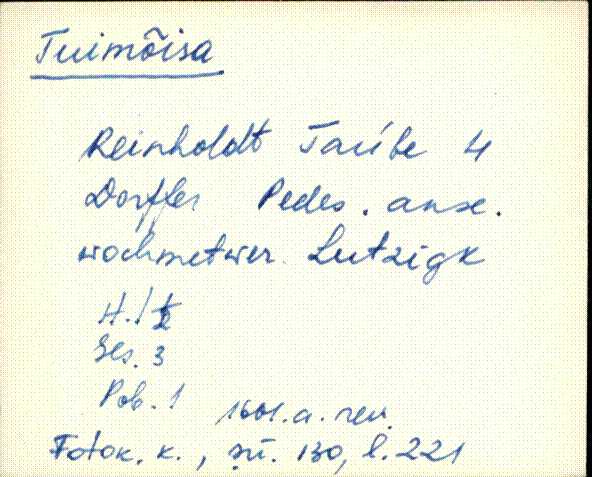 Tuimõisa
Reinholdt Taúbe 4
Dorffer Pedes. anse.
wochmetwer Lutzigk
H. 1
Ges. 3
Pob. 1 1601.a. rev.
Fotok. k., sü. 130, l. 221